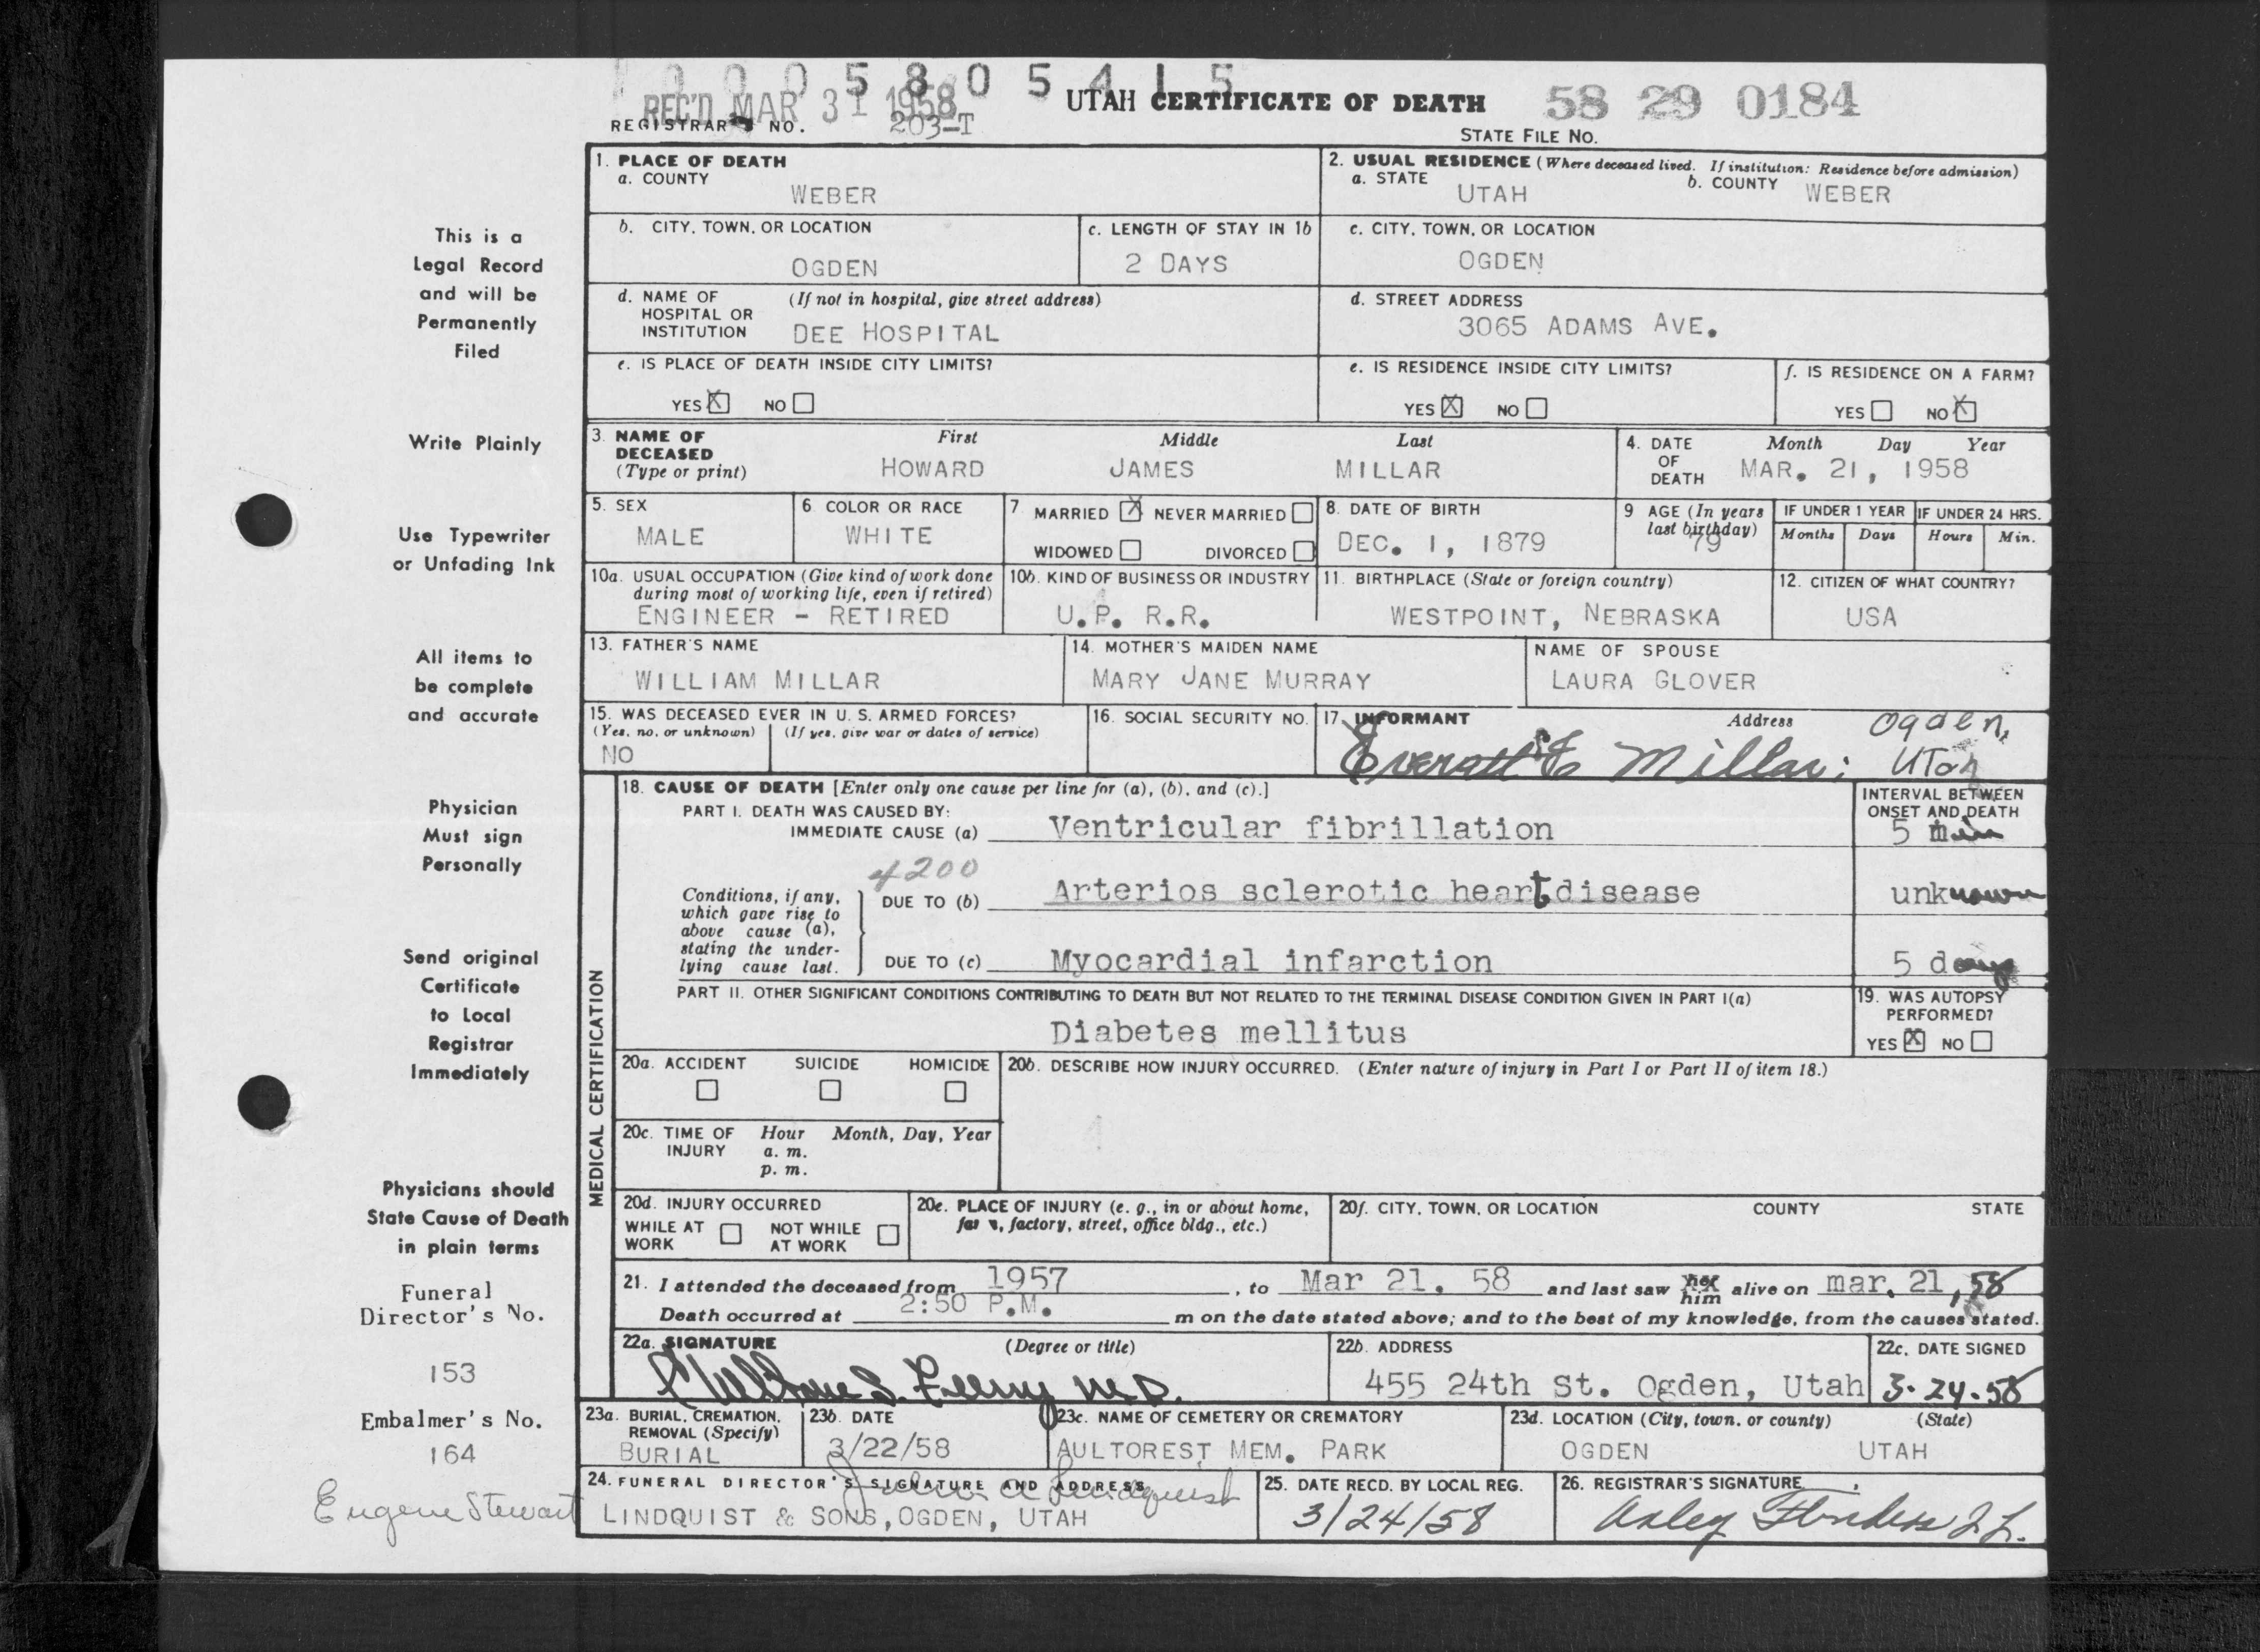 1 0 0 0 5 8 0 5 4 1 5
REC'D MAR 31 1958
UTAH CERTIFICATE OF DEATH
58 29 0184
REGISTRAR'S NO. 203-T
STATE FILE NO.
This is a
Legal Record
and will be
Permanently
Filed
Write Plainly
Use Typewriter
or Unfading Ink
All items to
be complete
and accurate
Physician
Must sign
Personally
Send original
Certificate
to Local
Registrar
Immediately
Physicians should
State Cause of Death
in plain terms
Funeral
Director's No.
153
Embalmer's No.
164
Eugene Stewart
1. PLACE OF DEATH
a. COUNTY
WEBER
2. USUAL RESIDENCE (Where deceased lived. If institution: Residence before admission)
a. STATE UTAH
b. COUNTY WEBER
b. CITY, TOWN, OR LOCATION
OGDEN
c. LENGTH OF STAY IN 1b
2 DAYS
c. CITY, TOWN, OR LOCATION
OGDEN
d. NAME OF (If not in hospital, give street address)
HOSPITAL OR
INSTITUTION DEE HOSPITAL
d. STREET ADDRESS
3065 ADAMS AVE.
e. IS PLACE OF DEATH INSIDE CITY LIMITS?
YES X NO
e. IS RESIDENCE INSIDE CITY LIMITS?
YES X NO
f. IS RESIDENCE ON A FARM?
YES NO X
3. NAME OF First Middle Last
DECEASED
(Type or print) HOWARD JAMES MILLAR
4. DATE Month Day Year
OF
DEATH MAR. 21, 1958
5. SEX
MALE
6. COLOR OR RACE
WHITE
7. MARRIED X NEVER MARRIED
WIDOWED DIVORCED
8. DATE OF BIRTH
DEC. 1, 1879
9 AGE (In years
last birthday)
79
IF UNDER 1 YEAR IF UNDER 24 HRS.
Months Days Hours Min.
10a. USUAL OCCUPATION (Give kind of work done
during most of working life, even if retired)
ENGINEER - RETIRED
10b. KIND OF BUSINESS OR INDUSTRY
U.P. R.R.
11. BIRTHPLACE (State or foreign country)
WESTPOINT, NEBRASKA
12. CITIZEN OF WHAT COUNTRY?
USA
13. FATHER'S NAME
WILLIAM MILLAR
14. MOTHER'S MAIDEN NAME
MARY JANE MURRAY
NAME OF SPOUSE
LAURA GLOVER
15. WAS DECEASED EVER IN U. S. ARMED FORCES?
(Yes, no, or unknown) (If yes, give war or dates of service)
NO
16. SOCIAL SECURITY NO.
17. INFORMANT Address
Millar; Ogden,
Utah
MEDICAL CERTIFICATION
18. CAUSE OF DEATH [Enter only one cause per line for (a), (b), and (c).]
PART I. DEATH WAS CAUSED BY:
IMMEDIATE CAUSE (a) Ventricular fibrillation
INTERVAL BETWEEN
ONSET AND DEATH
5 min
4200
Conditions, if any,
which gave rise to
above cause (a),
stating the under-
lying cause last.
DUE TO (b) Arterios sclerotic heart disease
unknown
DUE TO (c) Myocardial infarction
5 days
PART II. OTHER SIGNIFICANT CONDITIONS CONTRIBUTING TO DEATH BUT NOT RELATED TO THE TERMINAL DISEASE CONDITION GIVEN IN PART I(a)
Diabetes mellitus
19. WAS AUTOPSY
PERFORMED?
YES X NO
20a. ACCIDENT SUICIDE HOMICIDE
20b. DESCRIBE HOW INJURY OCCURRED. (Enter nature of injury in Part I or Part II of item 18.)
20c. TIME OF Hour Month, Day, Year
INJURY a. m.
p. m.
20d. INJURY OCCURRED
WHILE AT NOT WHILE
WORK AT WORK
20e. PLACE OF INJURY (e. g., in or about home,
factory, street, office bldg., etc.)
20f. CITY, TOWN, OR LOCATION COUNTY STATE
21. I attended the deceased from 1957, to Mar 21. 58 and last saw her
him alive on mar. 21, 58
Death occurred at 2:50 P.M. m on the date stated above; and to the best of my knowledge, from the causes stated.
22a. SIGNATURE (Degree or title)
M.D.
22b. ADDRESS
455 24th St. Ogden, Utah
22c. DATE SIGNED
3-24-58
23a. BURIAL, CREMATION,
REMOVAL (Specify)
BURIAL
23b. DATE
3/22/58
23c. NAME OF CEMETERY OR CREMATORY
AULTOREST MEM. PARK
23d. LOCATION (City, town, or county) (State)
OGDEN UTAH
24. FUNERAL DIRECTOR'S SIGNATURE AND ADDRESS
Lindquist
LINDQUIST & SONS, OGDEN, UTAH
25. DATE RECD. BY LOCAL REG.
3/24/58
26. REGISTRAR'S SIGNATURE